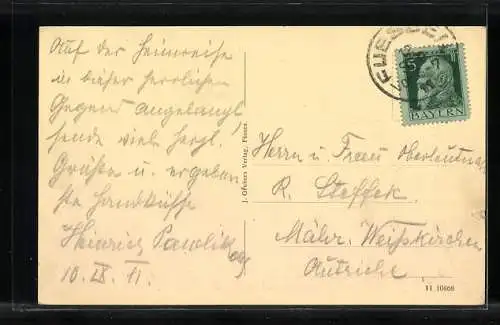 Auf der Heimreise
in dieser herrlichen
Gegend angelangt
sende viele herzl.
Grüße u. ergeben
ste Handküsse
Heinrich Pawlik
10. IX. 11.
J. Ofsners Verlag, Füssen.
FUESSEN
5
BAYERN
Herrn u. Frau Oberleutnant
R. Steffek
Mähr. Weißkirchen
Autriche
11 10868